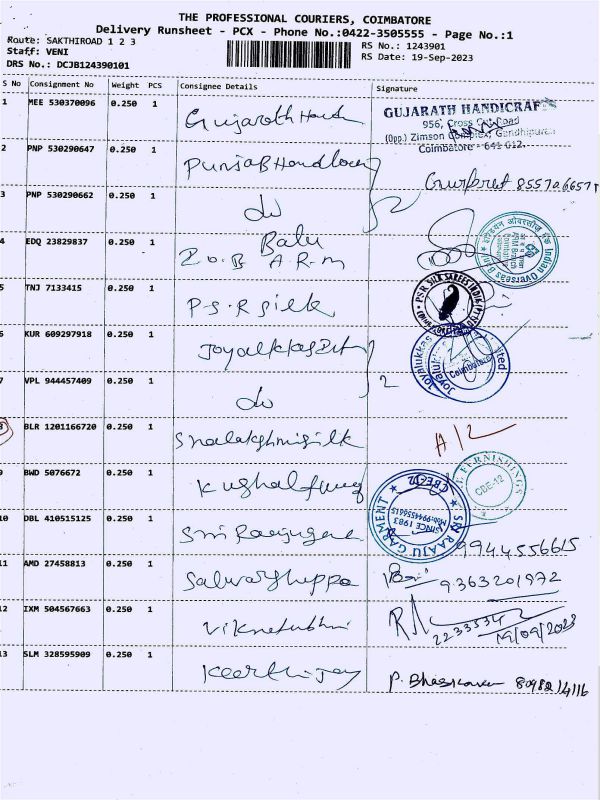 THE PROFESSIONAL COURIERS, COIMBATORE
Delivery Runsheet - PCX - Phone No.:0422-3505555 - Page No.:1
Route: SAKTHIROAD 1 2 3
Staff: VENI
DRS No.: DCJB124390101
RS No.: 1243901
RS Date: 19-Sep-2023
S No Consignment No Weight PCS Consignee Details Signature
1 MEE 530370096 0.250 1 Gujarath
GUJARATH HANDICRAFTS
956, Cross Cut Road
(Opp.) Zimson Complex, Gandhipuram
Coimbatore - 641 012.
2 PNP 530290647 0.250 1 Punjab Handloom
Gurpret 8557066571
3 PNP 530290662 0.250 1 do 2
4 EDQ 23829837 0.250 1 Balu
I.O.B A.R.M
इंडियन ओवरसीज़ बैंक Indian Overseas Bank
5 TNJ 7133415 0.250 1 P.S.R Silk
PSR SILK SAREES INDIA
6 KUR 609297918 0.250 1 Joyalukkas
Joyalukkas Limited
Coimbatore
7 VPL 944457409 0.250 1 do 2
8 BLR 1201166720 0.250 1 Srealakshmi silk A/L
9 BWD 5076672 0.250 1 Kushal
FURNISHINGS
CBE-12
10 DBL 410515125 0.250 1 Sri
SRI RAAJU GARMENT
CBE-12
SINCE 1983
Mob:9944556615
9944556615
11 AMD 27458813 0.250 1 9363201972
12 IXM 504567663 0.250 1 2233534
19/09/2023
13 SLM 328595909 0.250 1 P. Bhaskaran 80982 14116